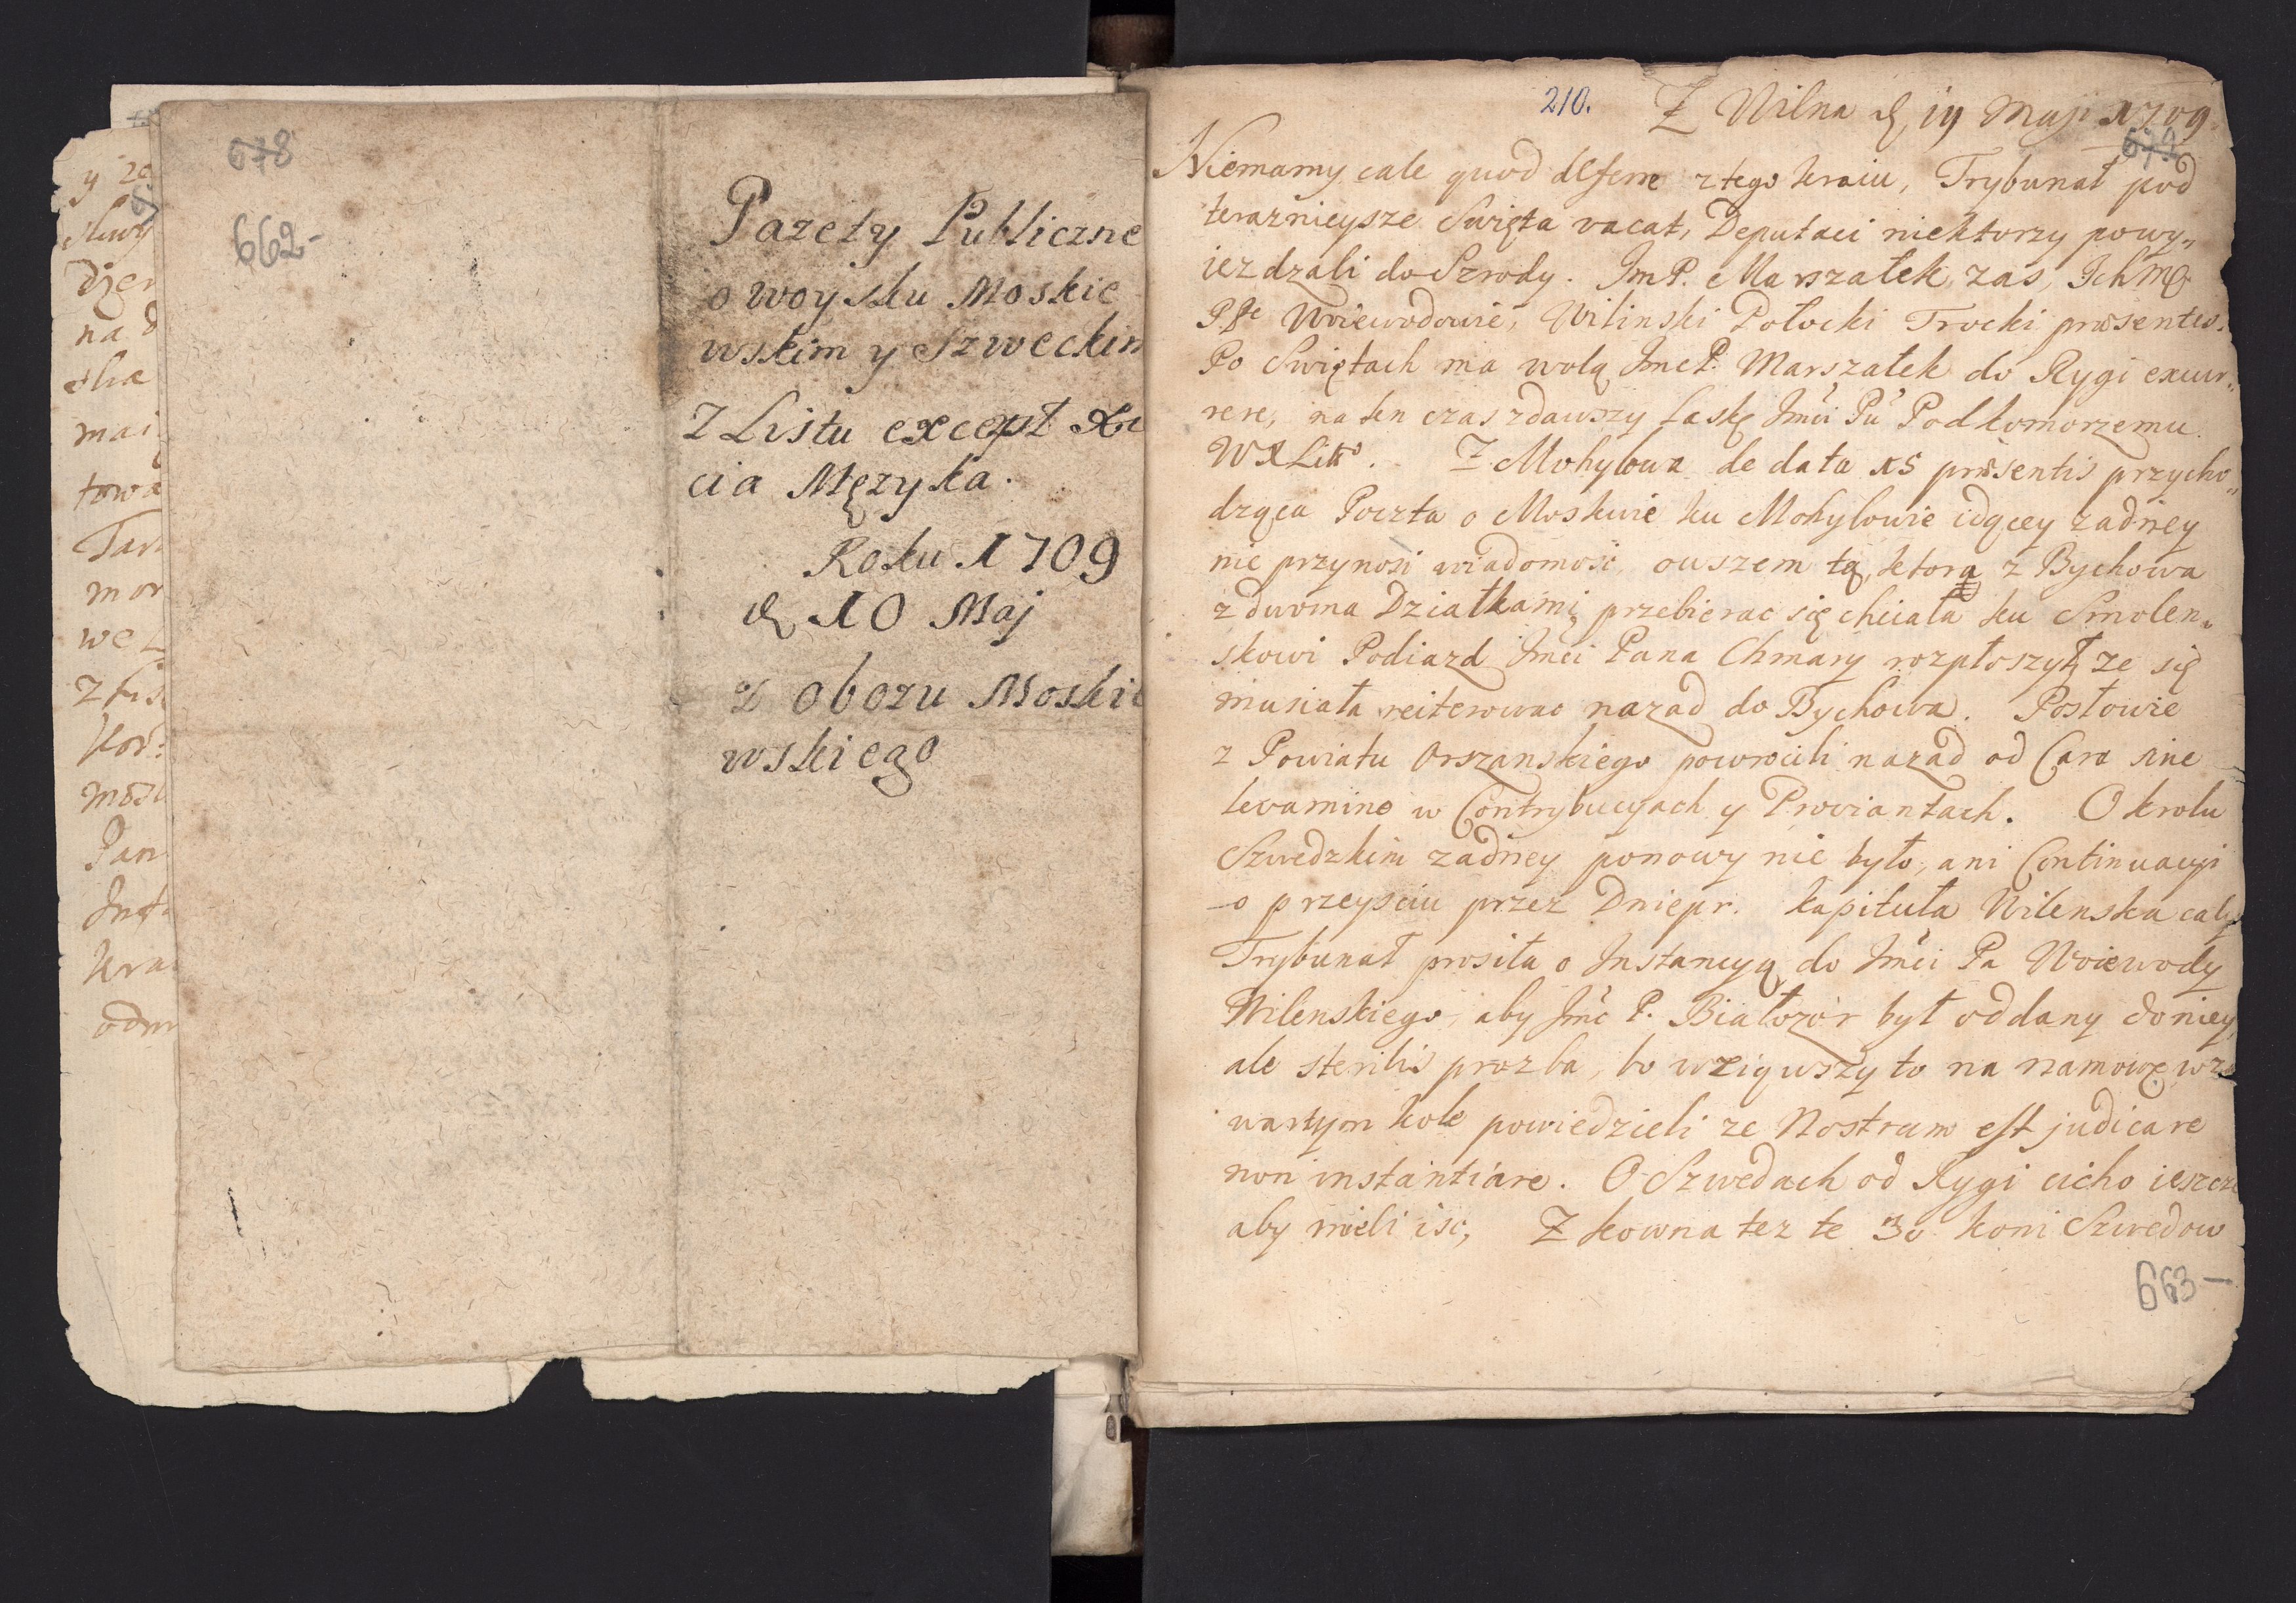 y ze
sluzy
dzer
na d
mai
towa
Tar
mor
we
z his
kor:
Pan
kra
odm
678
662-
Gazety Publiczne
o woysku Moskie
wskim y Szweckim
Z Listu except Xi
cia Męzyka.
Roku 1709
d 10 Maj
z obozu Moskie
wskiego
210. Z Wilna d, 19 Maji 1709
Niemamy cale quod deferre z tego kraiu, Trybunał pod
teraznieysze Swięta vacat, Deputaci niektorzy powy„
iezdzali do Szrody. ImP. Marszałek zas, Ichmę
PPe Woiewodowie, Wilinski Połocki Trocki præsentes.
Po Swiętach ma wolą ImcP. Marszałek do Rygi excur„
rere, na ten czas zdawszy Laskę Jmci Pu Podkomorzemu
WXLitto. Z Mohylowa de data 15 præsentis przycho„
dząca Poczta o Moskwie ku Mohylowie idącey zadney
nie przynosi wiadomosc, owszem tą, ktorą z Bychowa
z dwoma Działkami przebierac się chciała ku Smolen„
skowi Podiazd Jmci Pana Chmary rozpłoszył, ze się
musiała reiterowac nazad do Bychowa. Posłowie
z Powiatu Orszanskiego powrocili nazad od Cara sine
levamine w Contrybucyach y Proviantach. O krolu
Szwedzkim zadney ponowy nie było, ani Continuacyi
o przeysciu przez Dniepr. Kapituła Wilenska cały
Trybunał prosiła o Instancyą do Jmci Pa Woiewody
Wilenskiego, aby Jmc P. Białozor był oddany doniey
ale sterilis prozba, bo wziąwszy to na namowę wza
wartym kole powiedzieli ze Nostrum est judicare
non instantiare. O Szwedach od Rygi cicho ieszcze
aby mieli isc, Z kowna tez te 30 koni Szwedow
663-